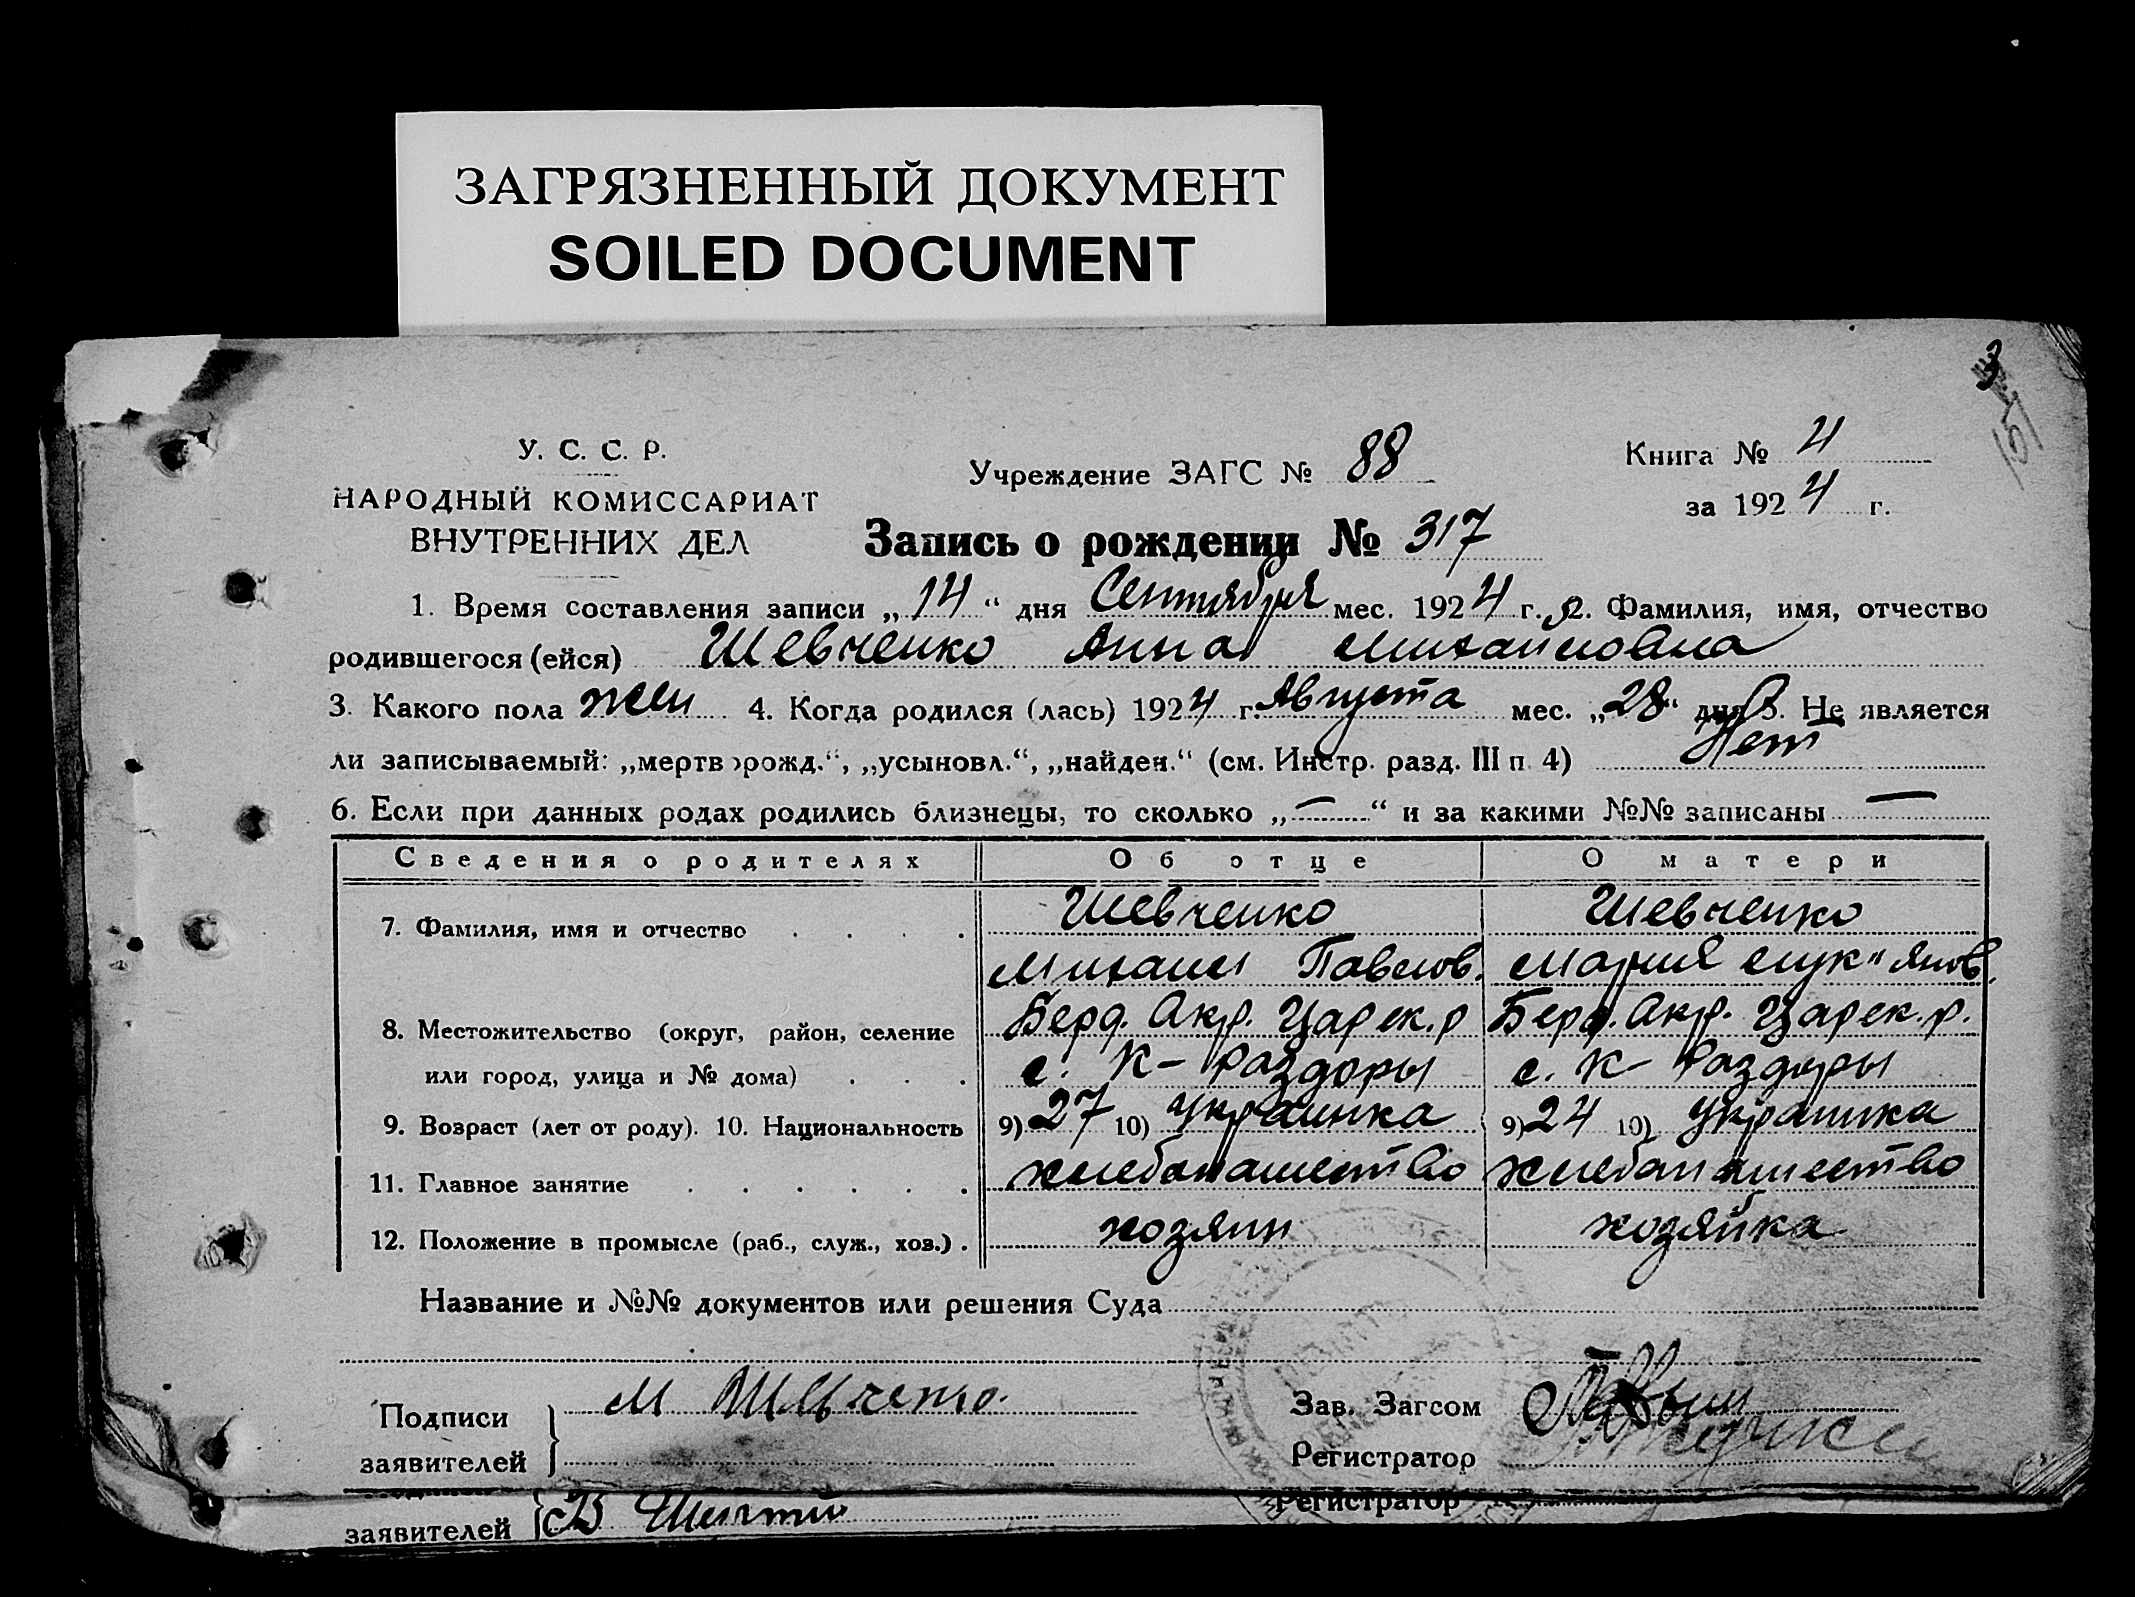 ЗАГРЯЗНЕННЫЙ ДОКУМЕНТ
SOILED DOCUMENT
3
151
У. С. С. Р.
НАРОДНЫЙ КОМИССАРИАТ
ВНУТРЕННИХ ДЕЛ
Учреждение ЗАГС № 88
Книга № 4
за 1924 г.
Запись о рождении № 317
1. Время составления записи „14“ дня Сентября мес. 1924 г. 2. Фамилия, имя, отчество
родившегося (ейся) Шевченко Анна Михайловна
3. Какого пола жен 4. Когда родился (лась) 1924 г. Августа мес. „28“ дня 5. Не является
ли записываемый: „мертворожд.“, „усыновл.“, „найден.“ (см. Инстр. разд. III п. 4) Нет
6. Если при данных родах родились близнецы, то сколько „—“ и за какими №№ записаны —
Сведения о родителях Об отце О матери
7. Фамилия, имя и отчество Шевченко Шевченко
Михаил Павлов. Мария Лук"янов.
8. Местожительство (округ, район, селение Берд. Окр. Царек. р Берд. Окр. Царек. р.
или город, улица и № дома) с. К- Раздоры с. К- Раздоры
9. Возраст (лет от роду). 10. Национальность 9) 27 10) Украинка 9) 24 10) Украинка
11. Главное занятие хлебопашество хлебопашество
12. Положение в промысле (раб., служ., хоз.) хозяин хозяйка
Название и №№ документов или решения Суда
Подписи М Шевченко Зав. Загсом
заявителей Регистратор
заявителей Регистратор